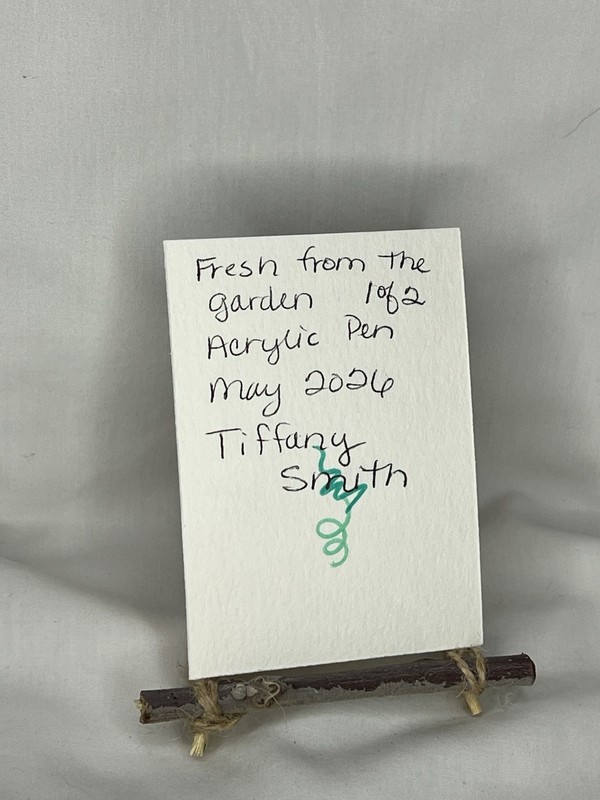 Fresh from the
garden 1of2
Acrylic Pen
May 2026
Tiffany
Smith